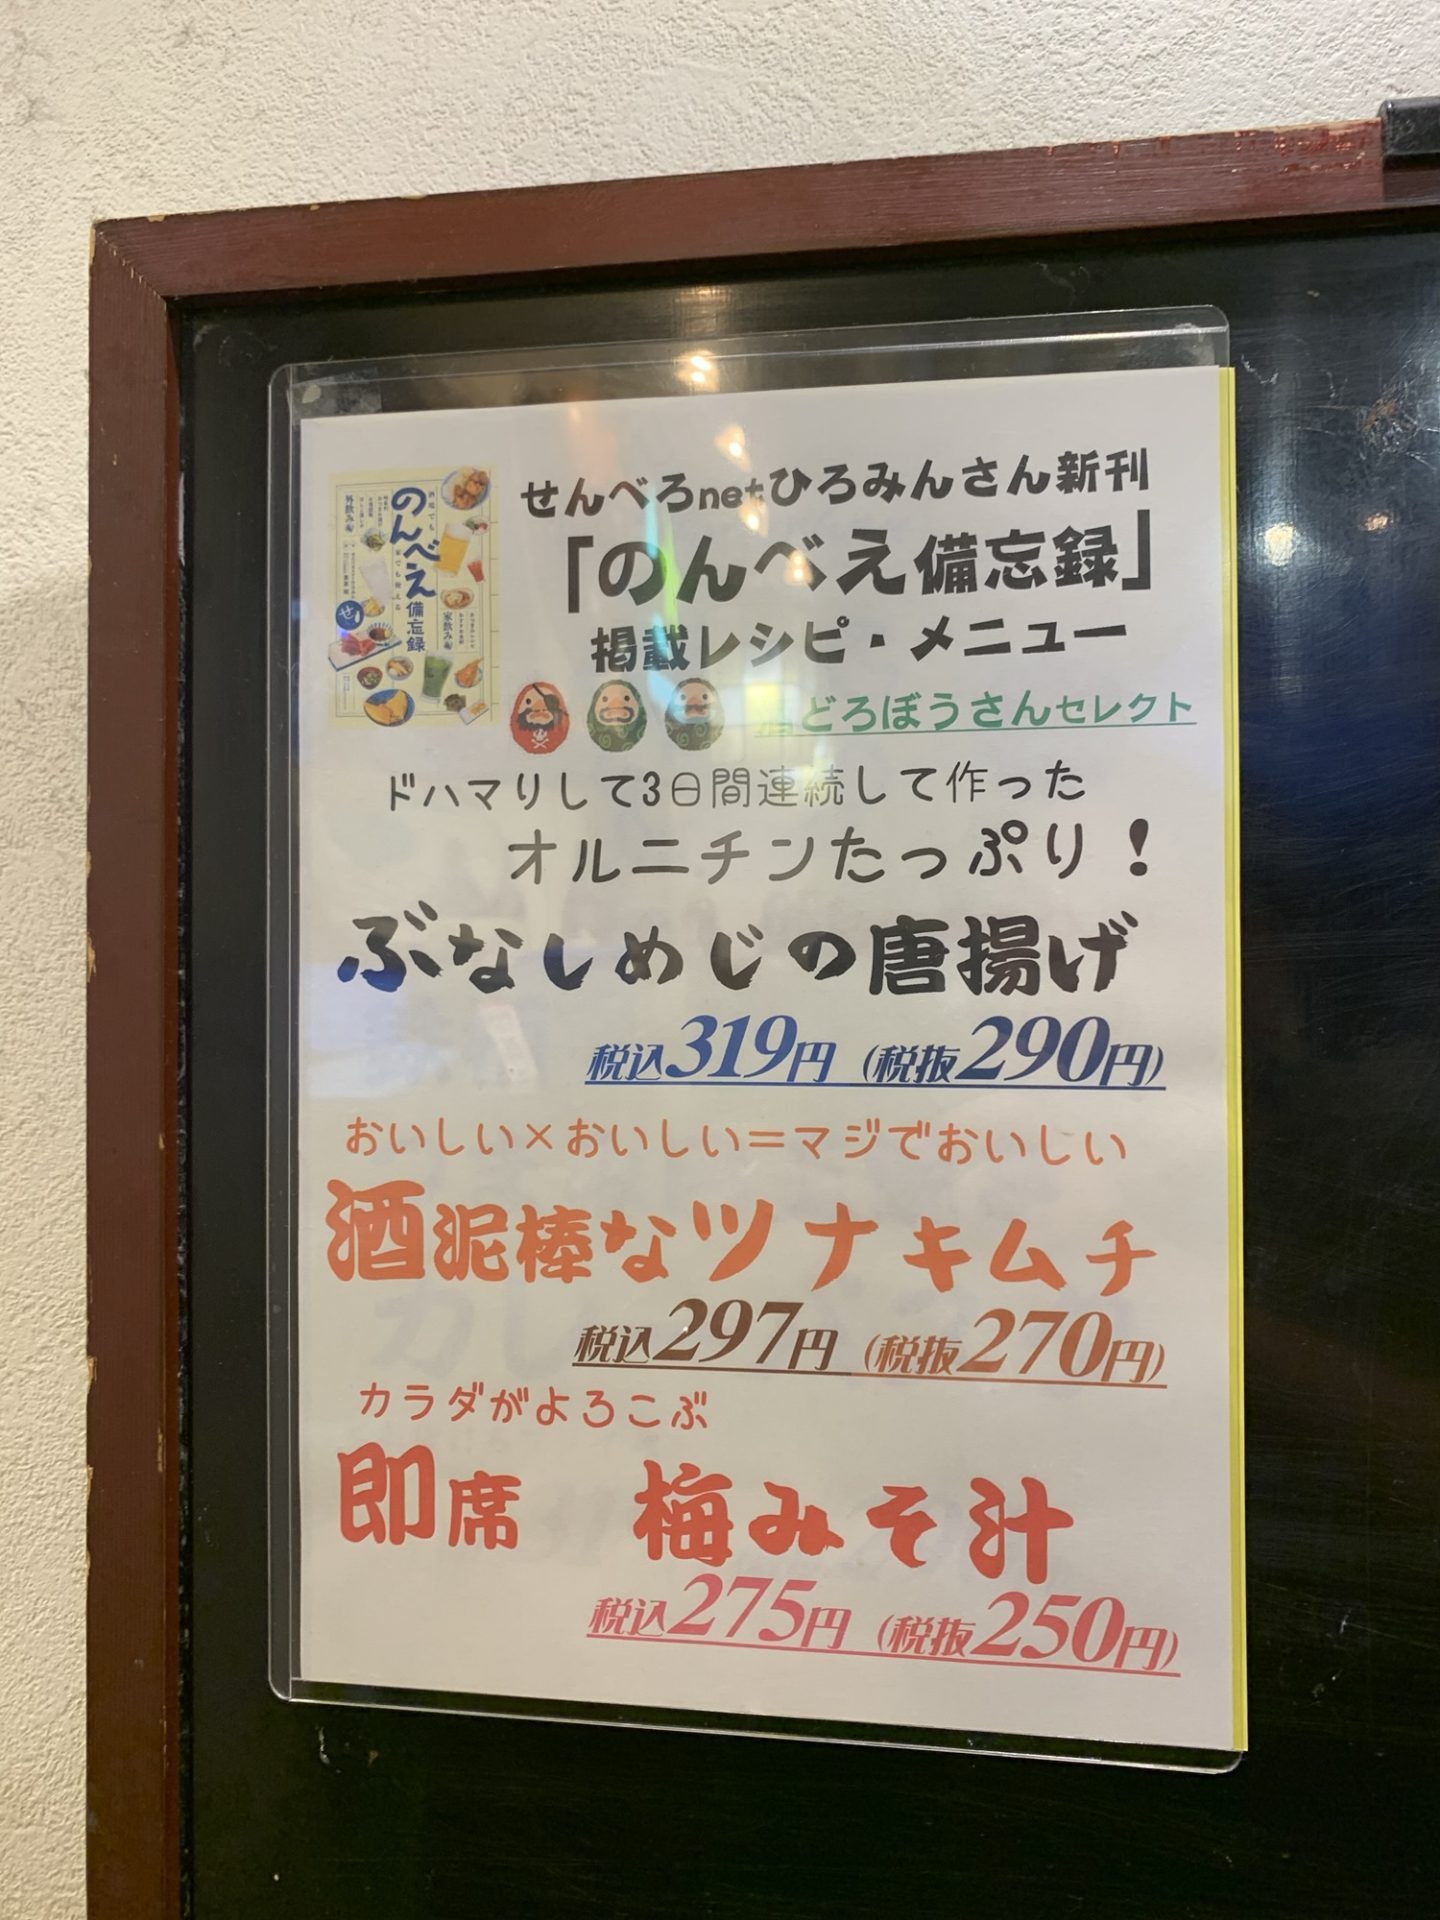 せんべろnetひろみんさん新刊
「のんべえ備忘録」
掲載レシピ・メニュー
どろぼうさんセレクト
のんべえ
備忘録
外飲み
家飲み
せ
ドハマりして3日間連続して作った
オルニチンたっぷり！
ぶなしめじの唐揚げ
税込319円 (税抜290円)
おいしい×おいしい＝マジでおいしい
酒泥棒なツナキムチ
税込297円 (税抜270円)
カラダがよろこぶ
即席 梅みそ汁
税込275円 (税抜250円)